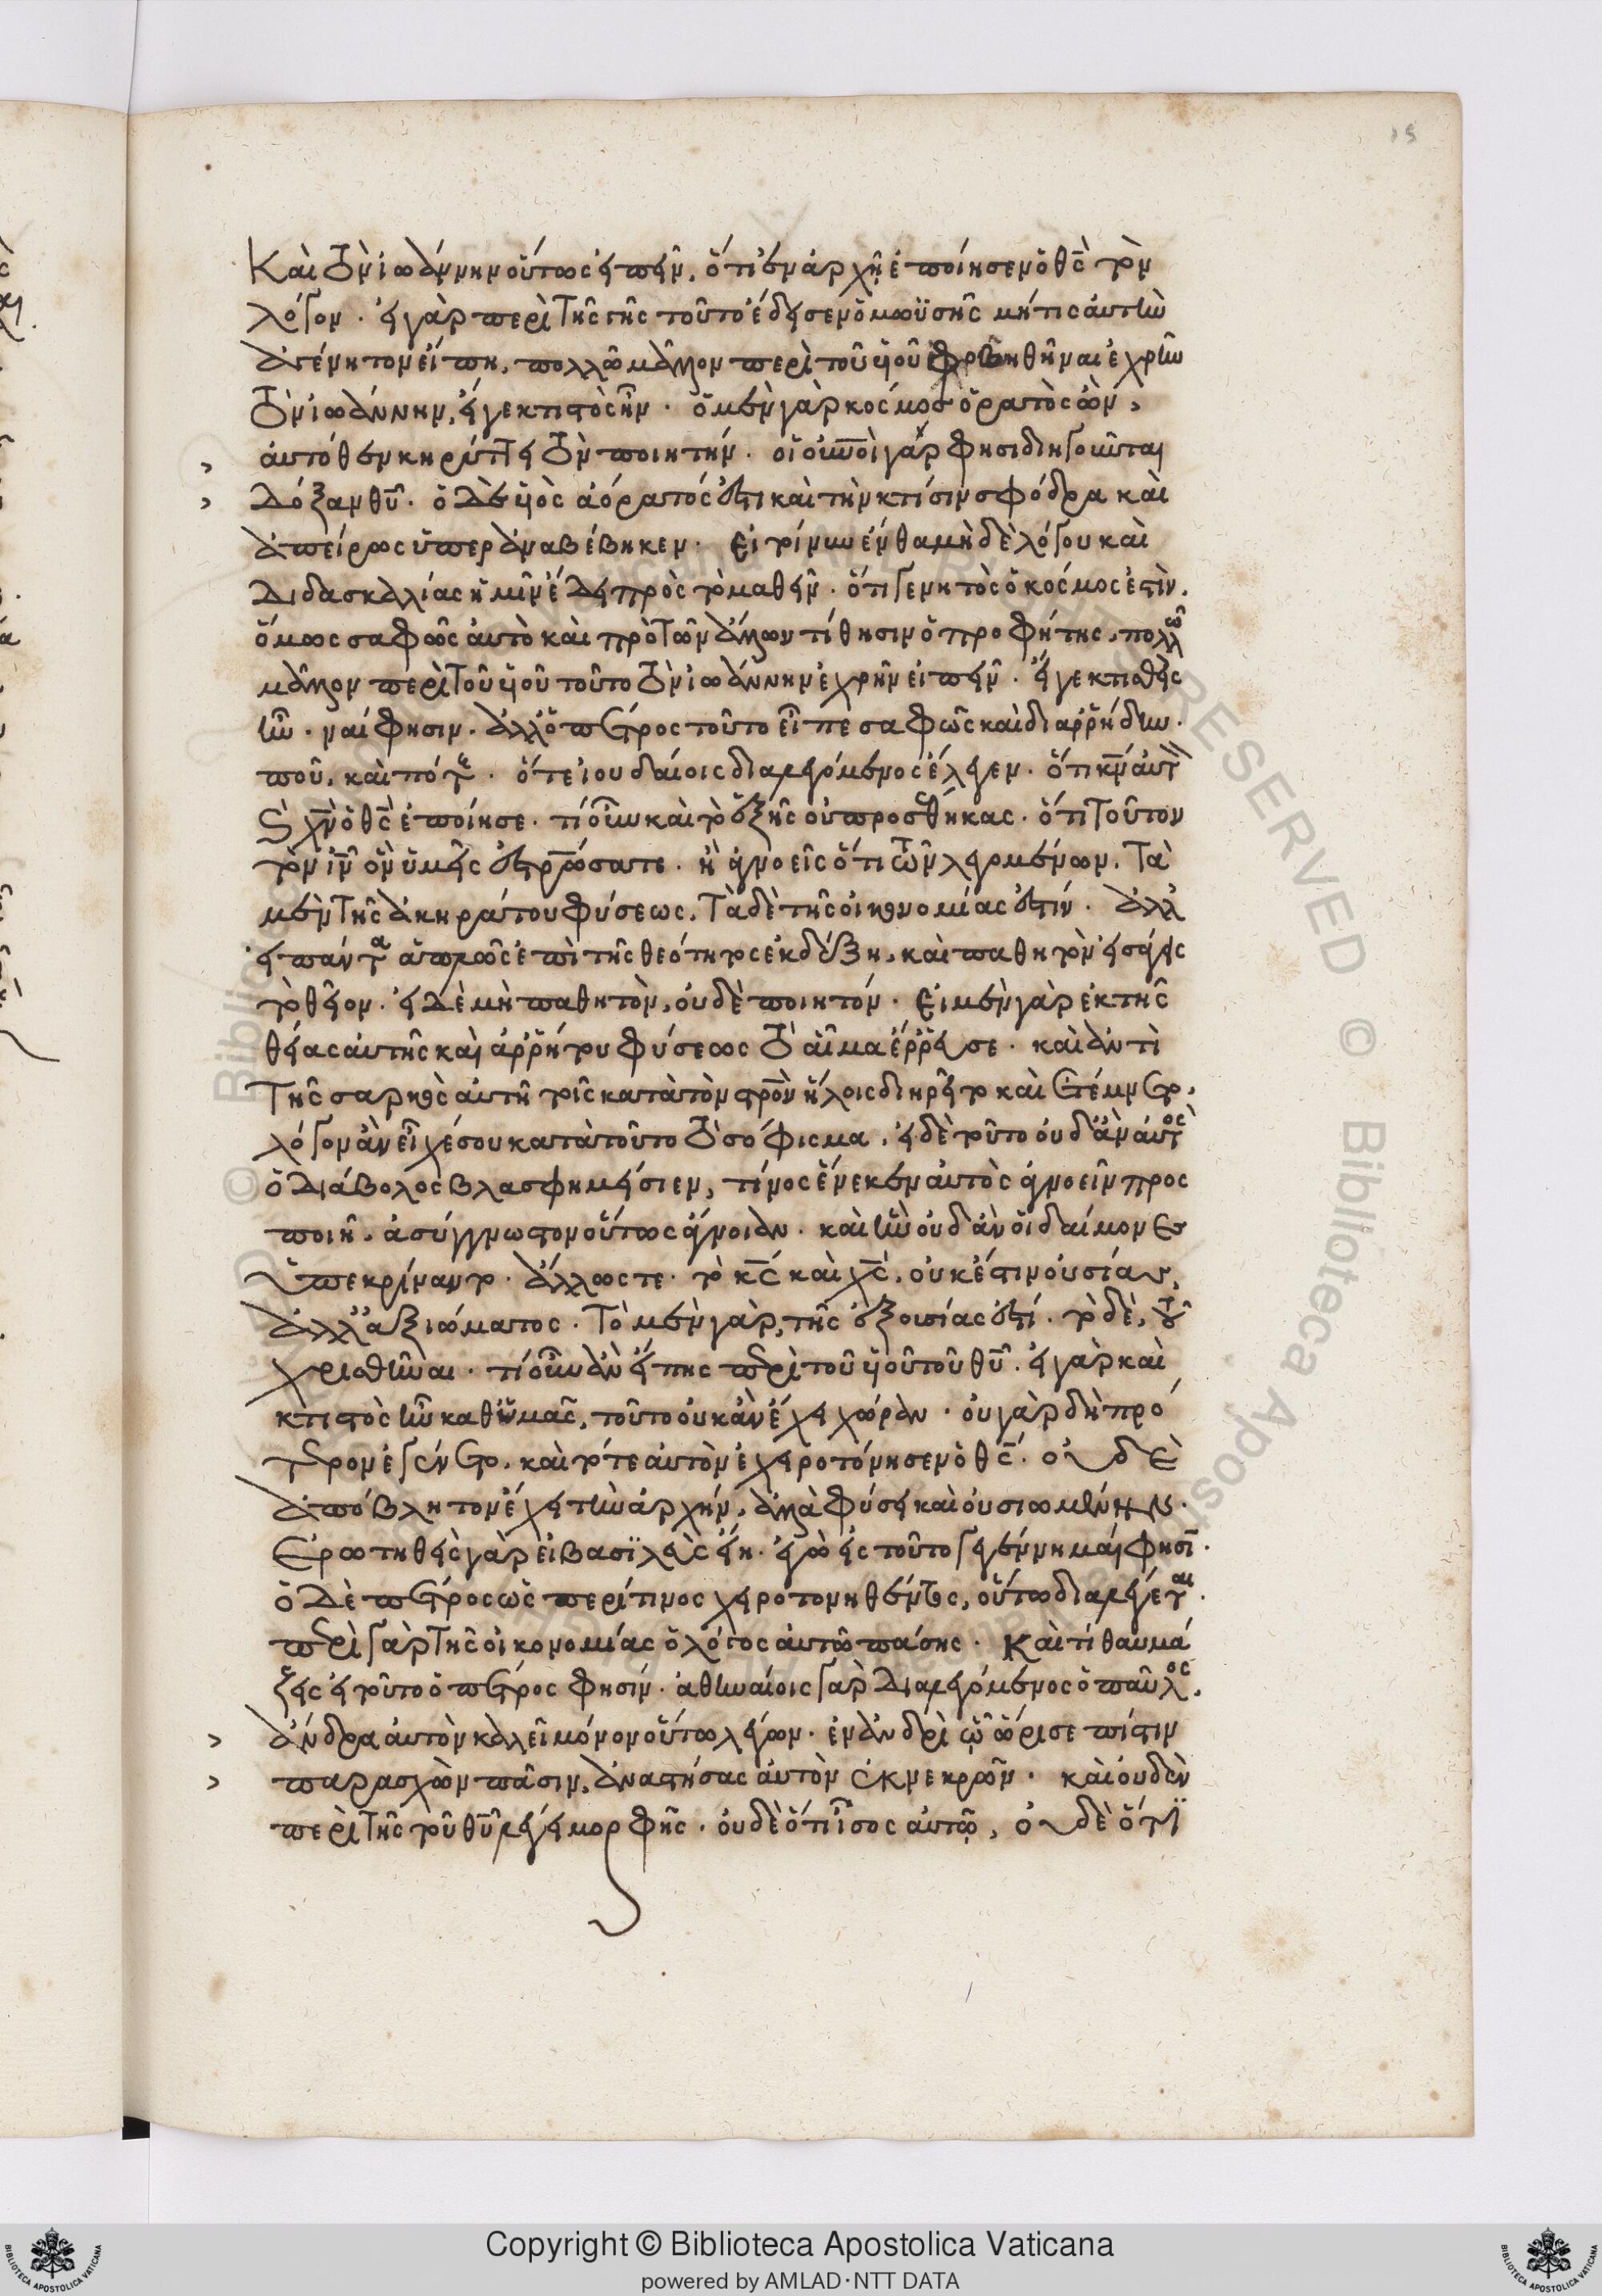 15
Καὶ τὸν ἰωάννην οὕτως εἰπεῖν. ὅτι ἐν ἀρχῇ ἐποίησεν ὁ θ̅ς̅ τὸν
λόγον. εἰ γὰρ περὶ τῆς γῆς τοῦτο ἔδεισεν ὁ μωϋσῆς μήτις αὐτὴν
ἀγένητον εἴπη, πολλῶ μᾶλλον περὶ τοῦ υἱοῦ φοβηθῆναι ἐχρῆν
τὸν ἰωάννην, εἴγε κτιστὸς ἦν. ὁ μὲν γὰρ κόσμος ὁρατὸς ὢν,
αὐτόθεν κηρύττει τὸν ποιητήν. οἱ ο̅υ̅ν̅οὶ γάρ φησι διηγοῦνται
δόξαν θ̅υ̅. ὁ δὲ υἱὸς ἀόρατός ἐστι καὶ τὴν κτίσιν σφόδρα καὶ
ἀπείρως ὑπεραναβέβηκεν. εἰ τοίνυν ἔνθα μὴ δὲ λόγου καὶ
διδασκαλίας ἡμῖν ἔδει πρὸς τὸ μαθεῖν. ὅτι γενητὸς ὁ κόσμος ἐστὶν.
ὅμως σαφῶς αὐτὸ καὶ πρὸ τῶν ἄλλων τίθησιν ὁ προφήτης, πολλῶ
μᾶλλον περὶ τοῦ υἱοῦ τοῦτο τὸν ἰωάννην ἐχρῆν εἰπεῖν. εἴγε κτισθεὶς
ἦν. ναί φησιν. ἀλλ' ὁ πέτρος τοῦτο εἶπε σαφῶς καὶ διαρρήδην.
ποῦ, καὶ πότε. ὅτε ἰουδαίοις διαλεγόμενος ἔλεγεν. ὅτι κ̅ν̅ αὐτὸν
καὶ χ̅ν̅ ὁ θ̅ς̅ ἐποίησε. τί οὖν καὶ τὸ ἑξῆς οὐ προσθήκας. ὅτι τοῦτον
τὸν ι̅ν̅ ὃν ὑμεῖς ἐστ̅ρ̅ώσατε. ἢ ἀγνοεῖς ὅτι τῶν λεγομένων, τὰ
μὲν τῆς ἀκηράτου φύσεως, τὰ δὲ τῆς οἰκονομίας ἐστίν. ἀλλ'
εἰ πάντα ἁπλῶς ἐπὶ τῆς θεότητος ἐκδέξη, καὶ παθητὸν εἰσάγεις
τὸ θεῖον. εἰ δὲ μὴ παθητὸν, οὐδὲ ποιητόν. εἰ μὲν γὰρ ἐκ τῆς
θείας αὐτῆς καὶ ἀρρήτου φύσεως τὸ αἷμα ἔρρευσε. καὶ ἀντὶ
τῆς σαρκὸς αὐτὴ τοῖς κατὰ τὸν στ̅ρ̅ὸν ἥλοις διηρεῖτο καὶ ἐτέμνετο,
λόγον ἂν εἶχέ σου κατὰ τοῦτο τὸ σόφισμα. εἰ δὲ τοῦτο οὐδ' ἂν αὐτὸς
ὁ διάβολος βλασφημήσιεν, τίνος ἕνεκεν αὐτὸς ἀγνοεῖν προς
ποιῆ. ἀσύγγνωστον οὕτως ἄγνοιαν. καὶ ἣν οὐδ' ἂν οἱ δαίμονες
ὑπεκρίναντο. ἄλλως τε. τὸ κ̅ς̅ καὶ χ̅ς̅, οὐκ ἔστιν οὐσίας,
ἀλλ' ἀξιώματος. τὸ μὲν γὰρ, τῆς ἐξουσίας ἐστί. τὸ δὲ, τοῦ
χρισθῆναι. τί οὖν ἂν εἴπης περὶ τοῦ υἱοῦ τοῦ θ̅υ̅. εἰ γὰρ καὶ
κτιστὸς ἦν καθ' ὑμᾶς, τοῦτο οὐκ ἂν ἔχει χώραν. οὐ γὰρ δὴ πρό
τερον ἐγένετο, καὶ τότε αὐτὸν ἐχειροτόνησεν ὁ θ̅ς̅. οὐδὲ
ἀπόβλητον ἔχει τὴν ἀρχήν, ἀλλὰ φύσει καὶ οὐσιωμένην.
Ἐρωτηθεὶς γὰρ εἰ βασϊλεὺς εἴη. ἐγὼ εἰς τοῦτο γεγέννημαί φησι.
ὁ δὲ πέτρος ὡς περί τινος χειροτονηθέντος, οὕτω διαλέγεται.
περὶ γὰρ τῆς οἰκονομίας ὁ λόγος αὐτῶ πάσης. Καὶ τί θαυμά
ζεις εἰ τοῦτο ὁ πέτρος φησίν. ἀθηναίοις γὰρ διαλεγόμενος ὁ παῦλος,
ἄνδρα αὐτὸν καλεῖ μόνον οὕτω λέγων. ἐν ἀνδρὶ ᾧ ὥρισε πίστιν
παρασχὼν πᾶσιν, ἀναστήσας αὐτὸν ἐκ νεκρῶν. καὶ οὐδὲν
περὶ τῆς τοῦ θ̅υ̅ λέγει μορφῆς. οὐδὲ ὅτι ἴσος αὐτῷ, οὐδὲ ὅτι
Copyright © Biblioteca Apostolica Vaticana
powered by AMLAD·NTT DATA